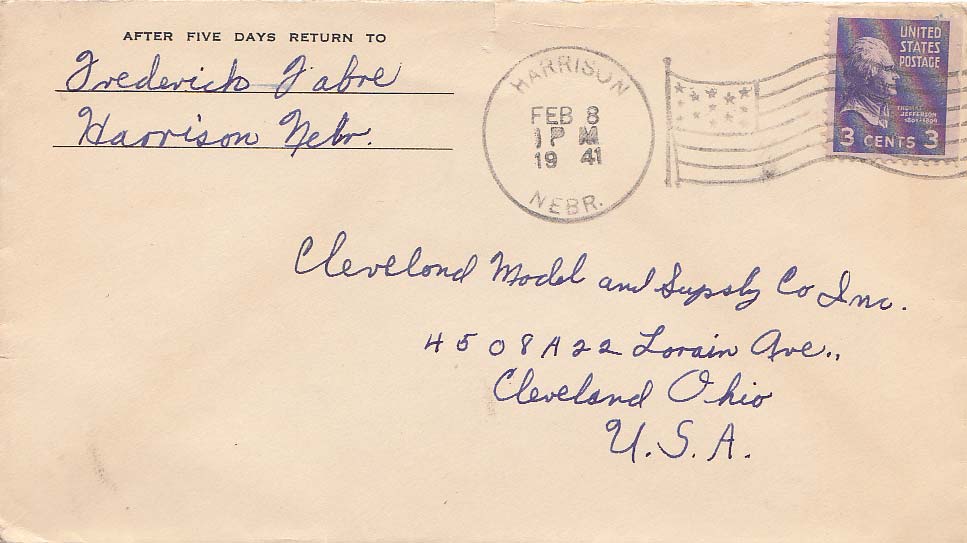 AFTER FIVE DAYS RETURN TO
Frederick Fabre
Harrison Nebr.
HARRISON
FEB 8
1 P M
19 41
NEBR.
UNITED
STATES
POSTAGE
THOMAS
JEFFERSON
1801-1809
3 CENTS 3
Cleveland Model and Supply Co Inc.
4508A22 Lorain Ave.,
Cleveland Ohio
U.S.A.